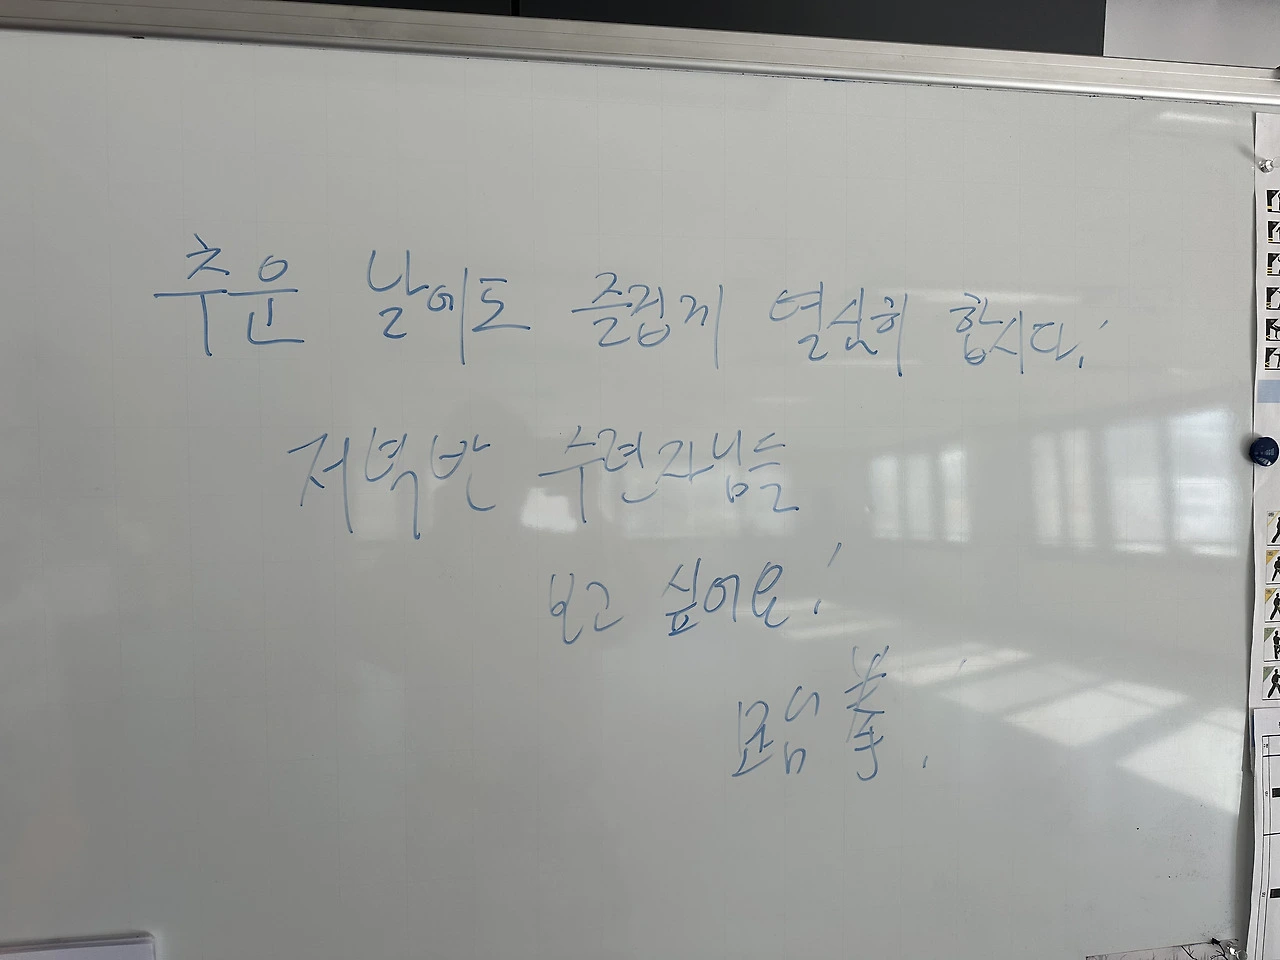 추운 날에도 즐겁게 열심히 합시다!
저녁반 수련자님들
보고 싶어요!
拳.